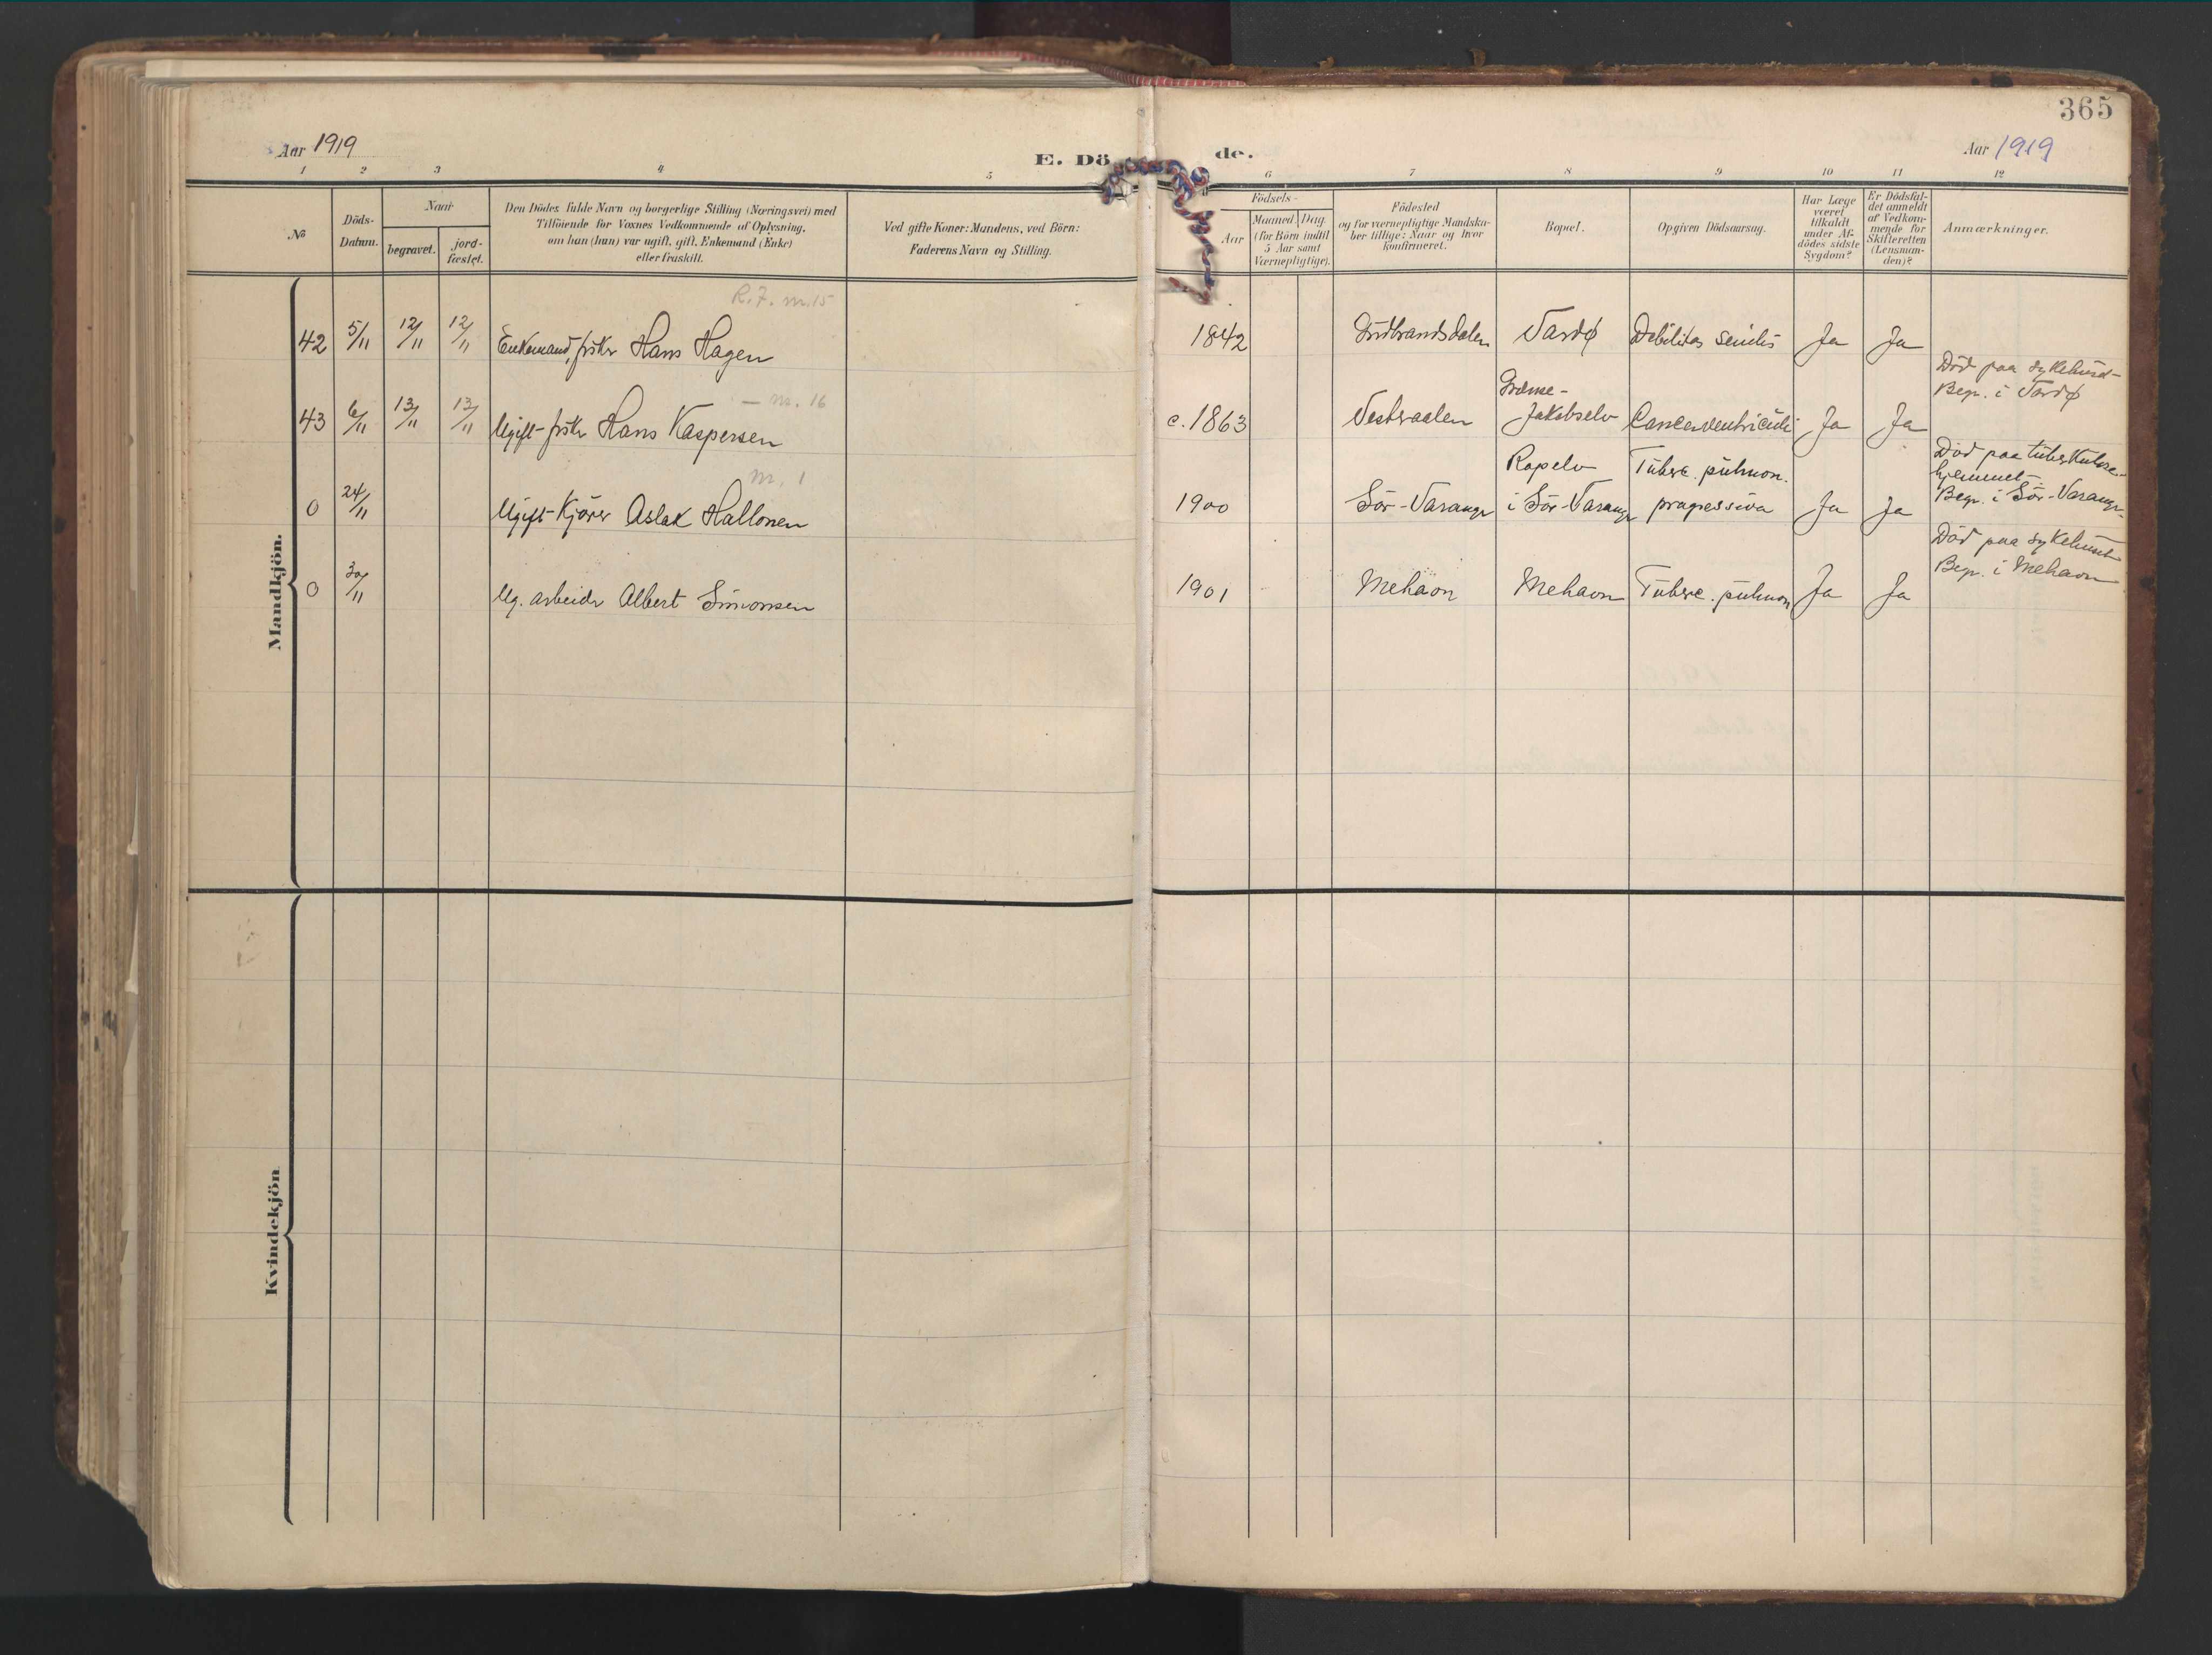 365
Aar 1919
E. Dö
de.
Aar 1919
1 2 3 4 5 6 7 8 9 10 11 12
No
Döds-
Datum.
Naar
begravet.
jord-
fæstet.
Den Dödes fulde Navn og borgerlige Stilling (Næringsvei) med
Tilföiende for Voxnes Vedkommende af Oplysning,
om han (hun) var ugift, gift, Enkemand (Enke)
eller fraskilt.
Ved gifte Koner: Mandens, ved Börn:
Faderens Navn og Stilling.
Födsels-
Aar
Maaned. Dag.
(for Börn indtil
5 Aar samt
Værnepligtige).
Födested
og for værnepligtige Mandska-
ber tillige: Naar og hvor
konfirmeret.
Bopæl.
Opgiven Dödsaarsag.
Har Læge
været
tilkaldt
under Af-
dödes sidste
Sygdom?
Er Dödsfal-
det anmeldt
af Vedkom-
mende for
Skifteretten
(Lensman-
den)?
Anmærkninger.
Mandkjön.
R.F. nr. 15
42 5/11 12/11 12/11 Enkemand, fskr Hans Hagen 1842 Gudbrandsdalen Vardø Debilitas senilis Ja Ja
Død paa sykehuset
Begr. i Vardø
— nr. 16
Grænse-
43 6/11 13/11 13/11 Ugift fskr Hans Kaspersen c. 1863 Vesteraalen Jakobselv Cancer ventriculi Ja Ja
Død paa tuberkulose-
hjemmet
Begr. i Sör-Varanger
nr. 1
Ropelv Tuberc. pulmon.
0 24/11 Ugift Kjörer Aslak Hallonen 1900 Sör-Varanger i Sör-Varanger progressiva Ja Ja
Død paa sykehuset
Begr. i Mehavn
0 30/11 Ug. arbeider Albert Simonsen 1901 Mehavn Mehavn Tuberc. pulmon Ja Ja
Kvindekjön